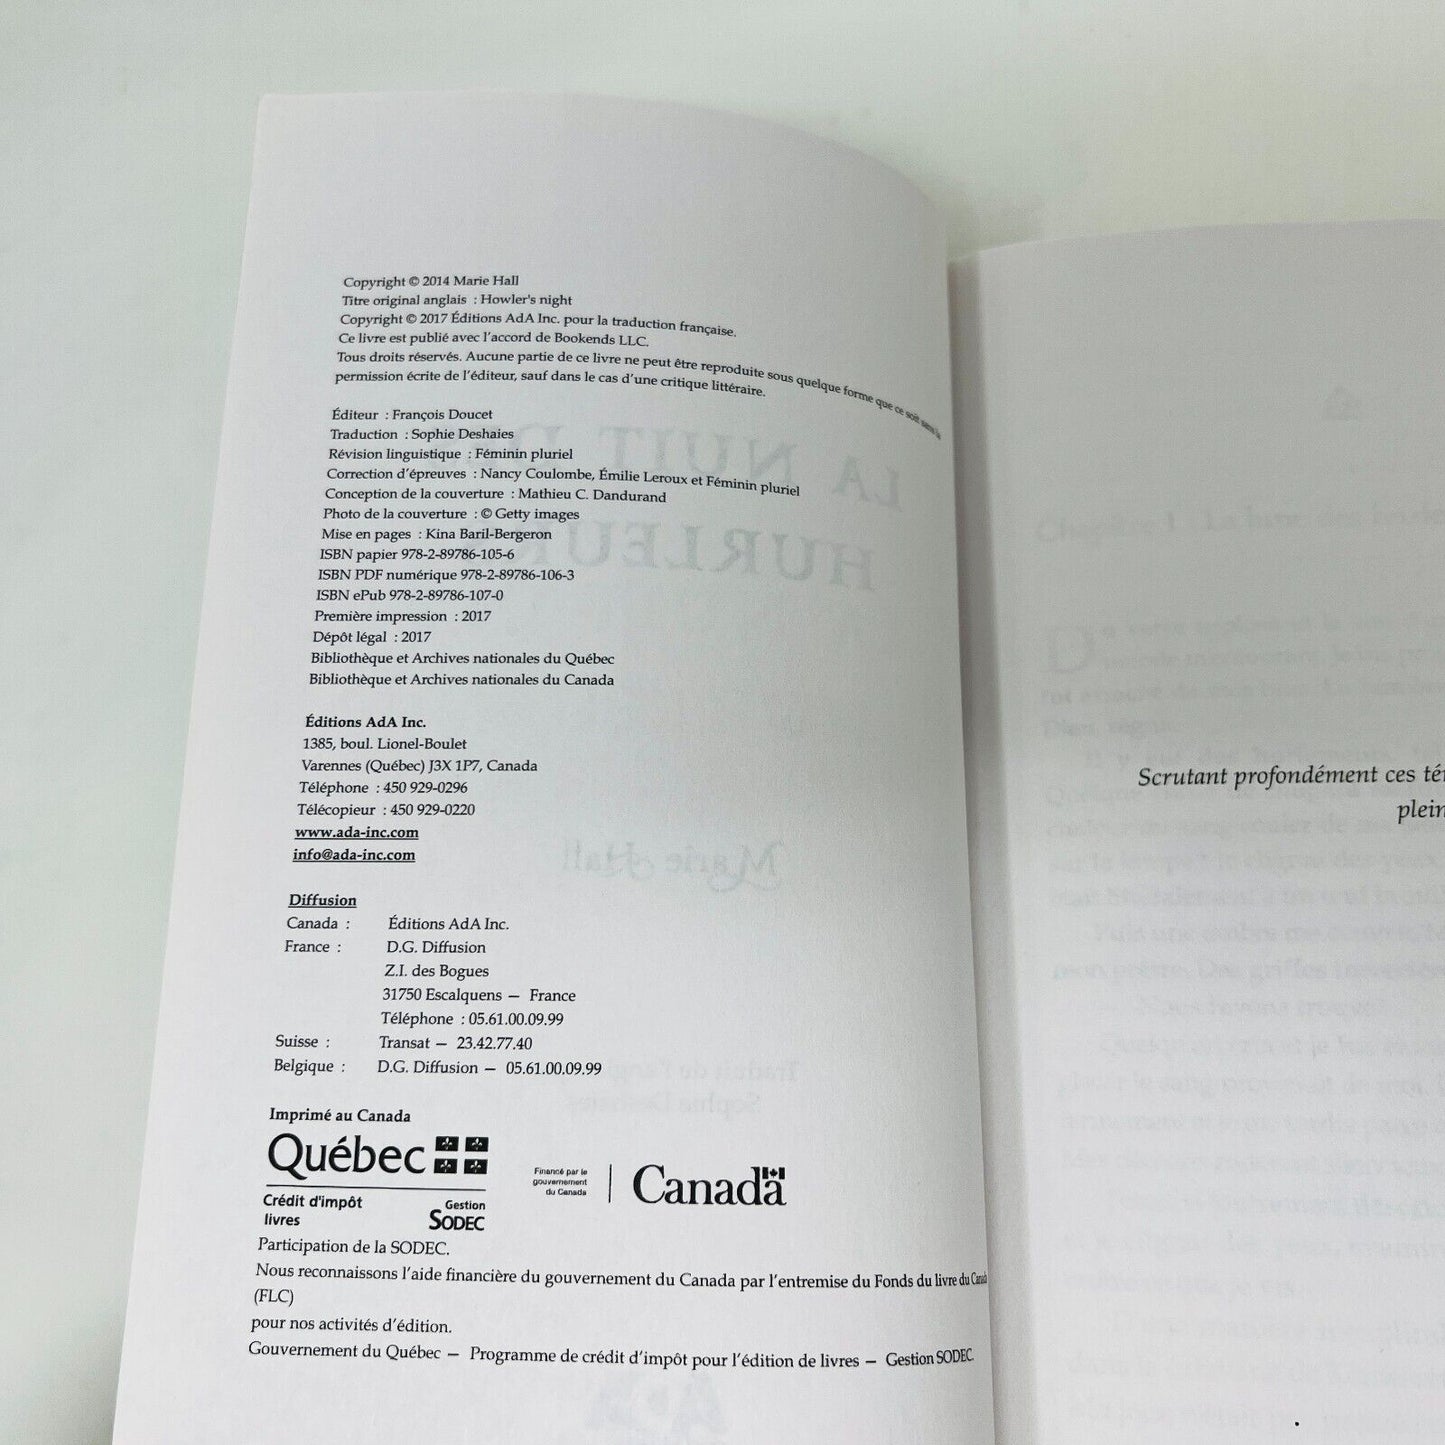 Copyright © 2014 Marie Hall
Titre original anglais : Howler's night
Copyright © 2017 Éditions AdA Inc. pour la traduction française.
Ce livre est publié avec l'accord de Bookends LLC.
Tous droits réservés. Aucune partie de ce livre ne peut être reproduite sous quelque forme que ce soit sans la
permission écrite de l'éditeur, sauf dans le cas d'une critique littéraire.
Éditeur : François Doucet
Traduction : Sophie Deshaies
Révision linguistique : Féminin pluriel
Correction d'épreuves : Nancy Coulombe, Émilie Leroux et Féminin pluriel
Conception de la couverture : Mathieu C. Dandurand
Photo de la couverture : © Getty images
Mise en pages : Kina Baril-Bergeron
ISBN papier 978-2-89786-105-6
ISBN PDF numérique 978-2-89786-106-3
ISBN ePub 978-2-89786-107-0
Première impression : 2017
Dépôt légal : 2017
Bibliothèque et Archives nationales du Québec
Bibliothèque et Archives nationales du Canada
Éditions AdA Inc.
1385, boul. Lionel-Boulet
Varennes (Québec) J3X 1P7, Canada
Téléphone : 450 929-0296
Télécopieur : 450 929-0220
www.ada-inc.com
info@ada-inc.com
Diffusion
Canada : Éditions AdA Inc.
France : D.G. Diffusion
Z.I. des Bogues
31750 Escalquens — France
Téléphone : 05.61.00.09.99
Suisse : Transat — 23.42.77.40
Belgique : D.G. Diffusion — 05.61.00.09.99
Imprimé au Canada
Québec
Crédit d'impôt
livres
Gestion
SODEC
Financé par le
gouvernement
du Canada
Canada
Participation de la SODEC.
Nous reconnaissons l'aide financière du gouvernement du Canada par l'entremise du Fonds du livre du Canada
(FLC)
pour nos activités d'édition.
Gouvernement du Québec — Programme de crédit d'impôt pour l'édition de livres — Gestion SODEC.
Scrutant profondément ces